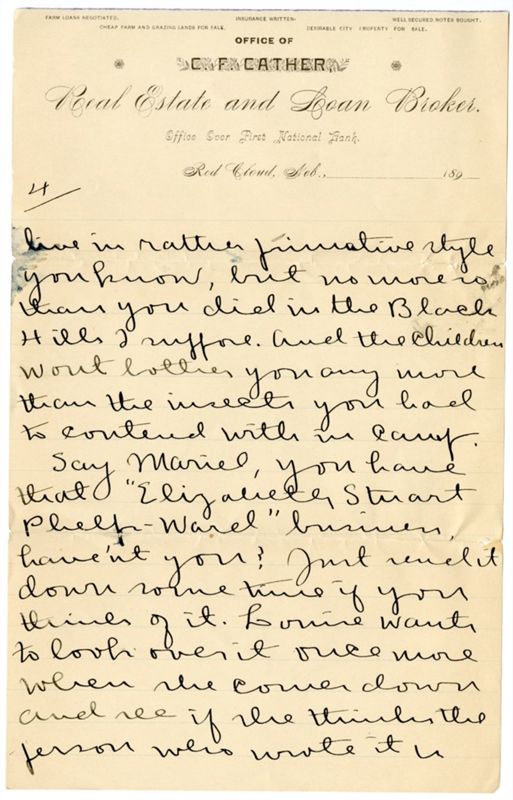 FARM LOANS NEGOTIATED. INSURANCE WRITTEN. WELL SECURED NOTES BOUGHT.
CHEAP FARM AND GRAZING LANDS FOR SALE. DESIRABLE CITY PROPERTY FOR SALE.
OFFICE OF
C. F. CATHER,
Real Estate and Loan Broker.
Office Over First National Bank.
Red Cloud, Neb., 189
4
live in rather primative style
you know, but no more so
than you did in the Black
Hills I suppose. And the children
wont bother you any more
than the insects you had
to contend with in camp.
Say Mariel, you have
that "Elizabeth Stuart
Phelps-Ward" business,
have'nt you? Just send it
down some time if you
think of it. Louise wants
to look over it once more
when she comes down
and see if she thinks the
person who wrote it is